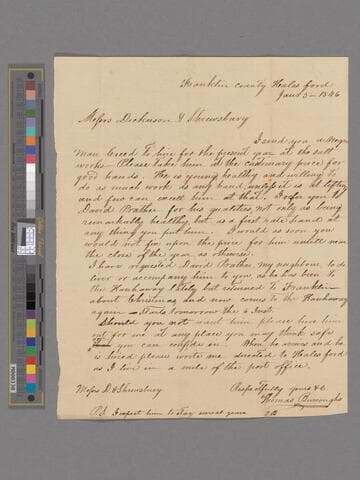 Franklin county Hales ford
Jany 5th 1846
Messrs Dickinson & Shrewsbury
I send you a Negro
man Creed to hire for the present year at the salt
works - Please take him at the customary price for
good hands. He is young healthy and willing to
do as much work as any hand, unless it is at lifting
and few can excell him at that, I refer you to
David Prather for his qualities not only as being
remarkably healthy, but as a first rate hand at
any thing you put him. I would as soon you
would not fix upon the price for him untill near
the close of the year as otherwise.
I have requested David Prather my neighbour to de
liver or accompany him to you as he has been to
the Kanhaway lately but returned to Franklin
about Christmas and now comes to the Kanhaway
again - Starts tomorrow the 6 Inst.
Should you not want him please hire him
out for me at any place you may think safe
you can confide in. When he arives and he
is hired please write me directed to Hales ford
as I live in a mile of the post office.
Respectfully yours &c
Messrs D & Shrewsbury
Thomas Burroughs
PS I expect him to stay several years